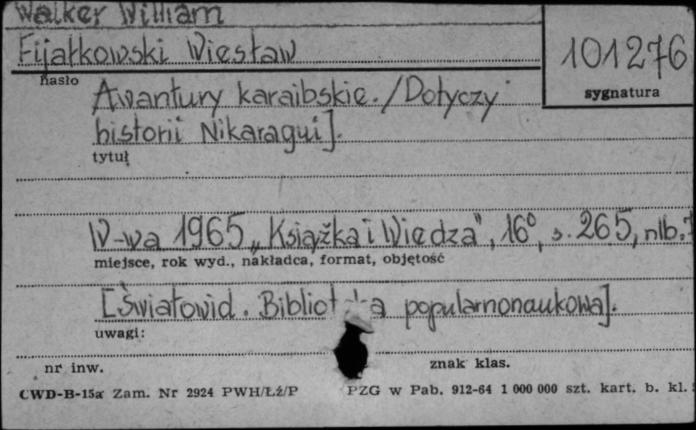 Walker William
Fijałkowski Wiesław
101276
hasło
sygnatura
Awantury karaibskie. /Dotyczy
historii Nikaragui].
tytuł
W-wa 1965 „Książka i Wiedza", 16°, s. 265, nlb.
miejsce, rok wyd., nakładca, format, objętość
[Światowid. popularnonaukowa].
uwagi:
nr inw. znak klas.
CWD-B-15a Zam. Nr 2924 PWH/Łź/P PZG w Pab. 912-64 1 000 000 szt. kart. b. kl.